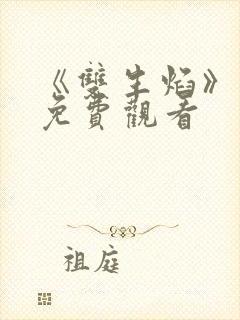 《雙生焰》
免費觀看
祖庭